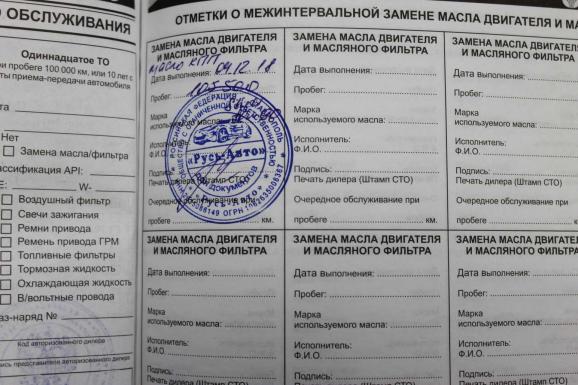 О ОБСЛУЖИВАНИЯ
Одиннадцатое ТО
при пробеге 100 000 км, или 10 лет с
ты приема-передачи автомобиля
Нет
Замена масла/фильтра
ассификация API:
Е: W-
Воздушный фильтр
Свечи зажигания
Ремни привода
Ремень привода ГРМ
Топливные фильтры
Тормозная жидкость
Охлаждающая жидкость
В/вольтные провода
аз-наряд №
Код авторизованного дилера
пись представителя авторизованного дилера
ОТМЕТКИ О МЕЖИНТЕРВАЛЬНОЙ ЗАМЕНЕ МАСЛА ДВИГАТЕЛЯ И МА
ЗАМЕНА МАСЛА ДВИГАТЕЛЯ
И МАСЛЯНОГО ФИЛЬТРА
масло КПП
Дата выполнения: 04.12.18
Пробег: 105500
Марка
используемого масла:
Исполнитель:
Ф.И.О.
Подпись:
Печать дилера (Штамп СТО)
Очередное обслуживание при
пробеге км.
РОССИЙСКАЯ ФЕДЕРАЦИЯ
СТАВРОПОЛЬ
«Русь-Авто»
ДЛЯ ДОКУМЕНТОВ
«Русь-Авто»
ЗАМЕНА МАСЛА ДВИГАТЕЛЯ
И МАСЛЯНОГО ФИЛЬТРА
Дата выполнения:
Пробег:
Марка
используемого масла:
Исполнитель:
Ф.И.О.
Подпись:
Печать дилера (Штамп СТО)
Очередное обслуживание при
пробеге км.
ЗАМЕНА МАСЛА ДВИГАТЕЛ
И МАСЛЯНОГО ФИЛЬТРА
Дата выполнения:
Пробег:
Марка
используемого масла:
Исполнитель:
Ф.И.О.
Подпись:
Печать дилера (Штамп СТО)
Очередное обслуживание при
пробеге км.
ЗАМЕНА МАСЛА ДВИГАТЕЛЯ
И МАСЛЯНОГО ФИЛЬТРА
Дата выполнения:
Пробег:
Марка
используемого масла:
Исполнитель:
Ф.И.О.
Подпись:
Печать дилера (Штамп СТО)
ЗАМЕНА МАСЛА ДВИГАТЕЛЯ
И МАСЛЯНОГО ФИЛЬТРА
Дата выполнения:
Пробег:
Марка
используемого масла:
Исполнитель:
Ф.И.О.
Подпись:
Печать дилера (Штамп СТО)
ЗАМЕНА МАСЛА ДВИГАТЕЛ
И МАСЛЯНОГО ФИЛЬТРА
Дата выполнения:
Пробег:
Марка
используемого масла:
Исполнитель:
Ф.И.О.
Подпись: